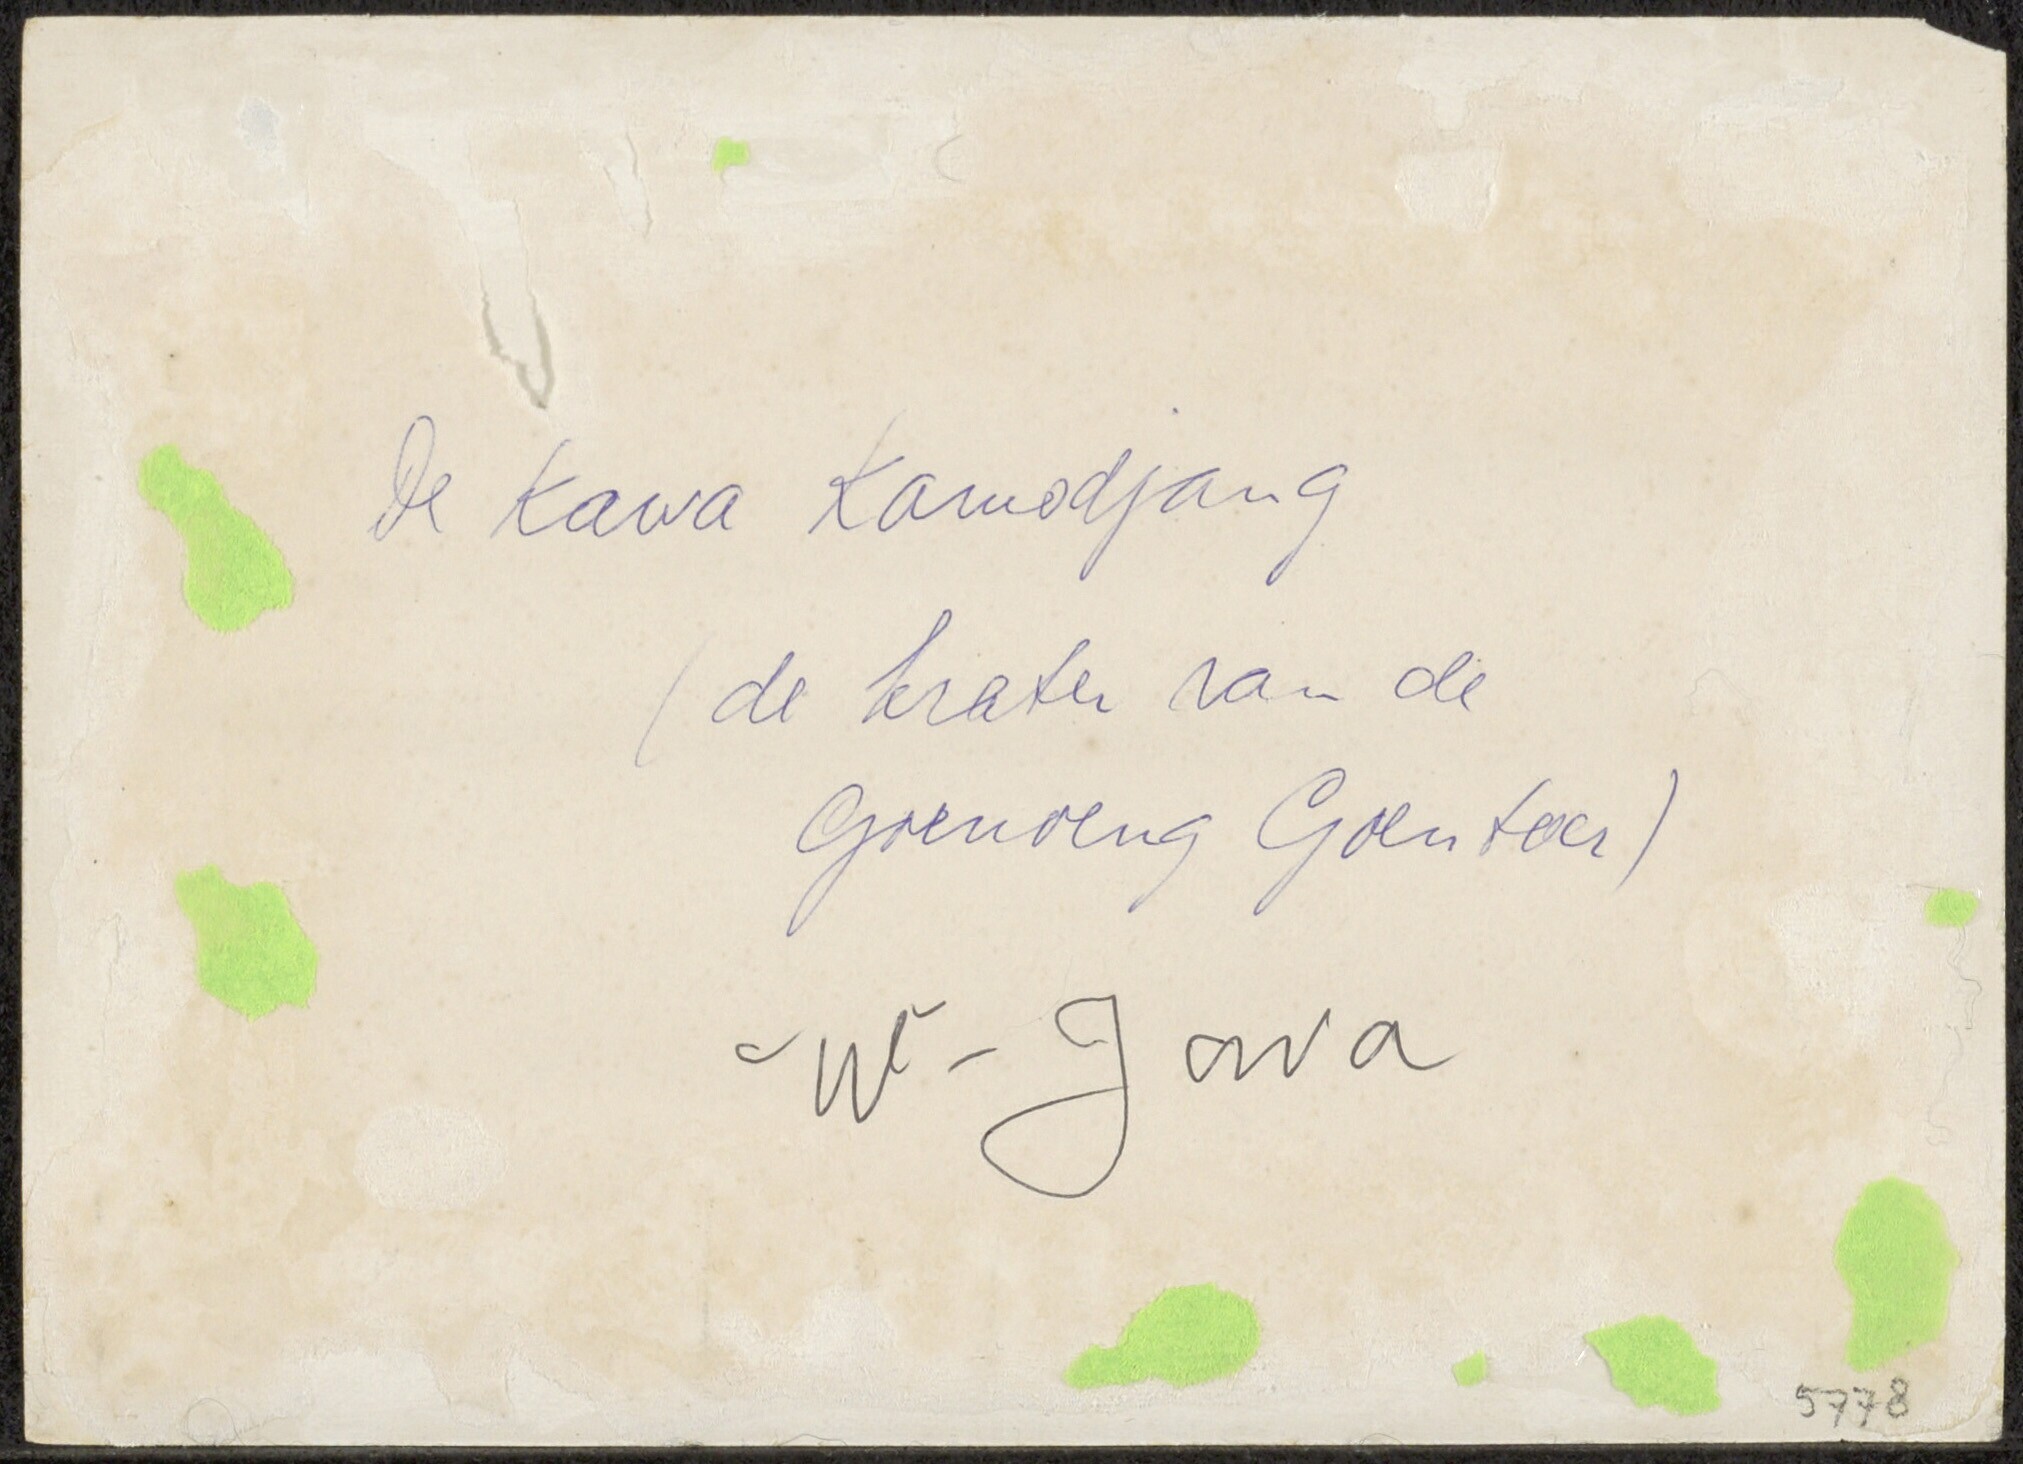 De Kawa Kamodjang
(de krater van de
Goenoeng Goentoer)
- W - Java
5778